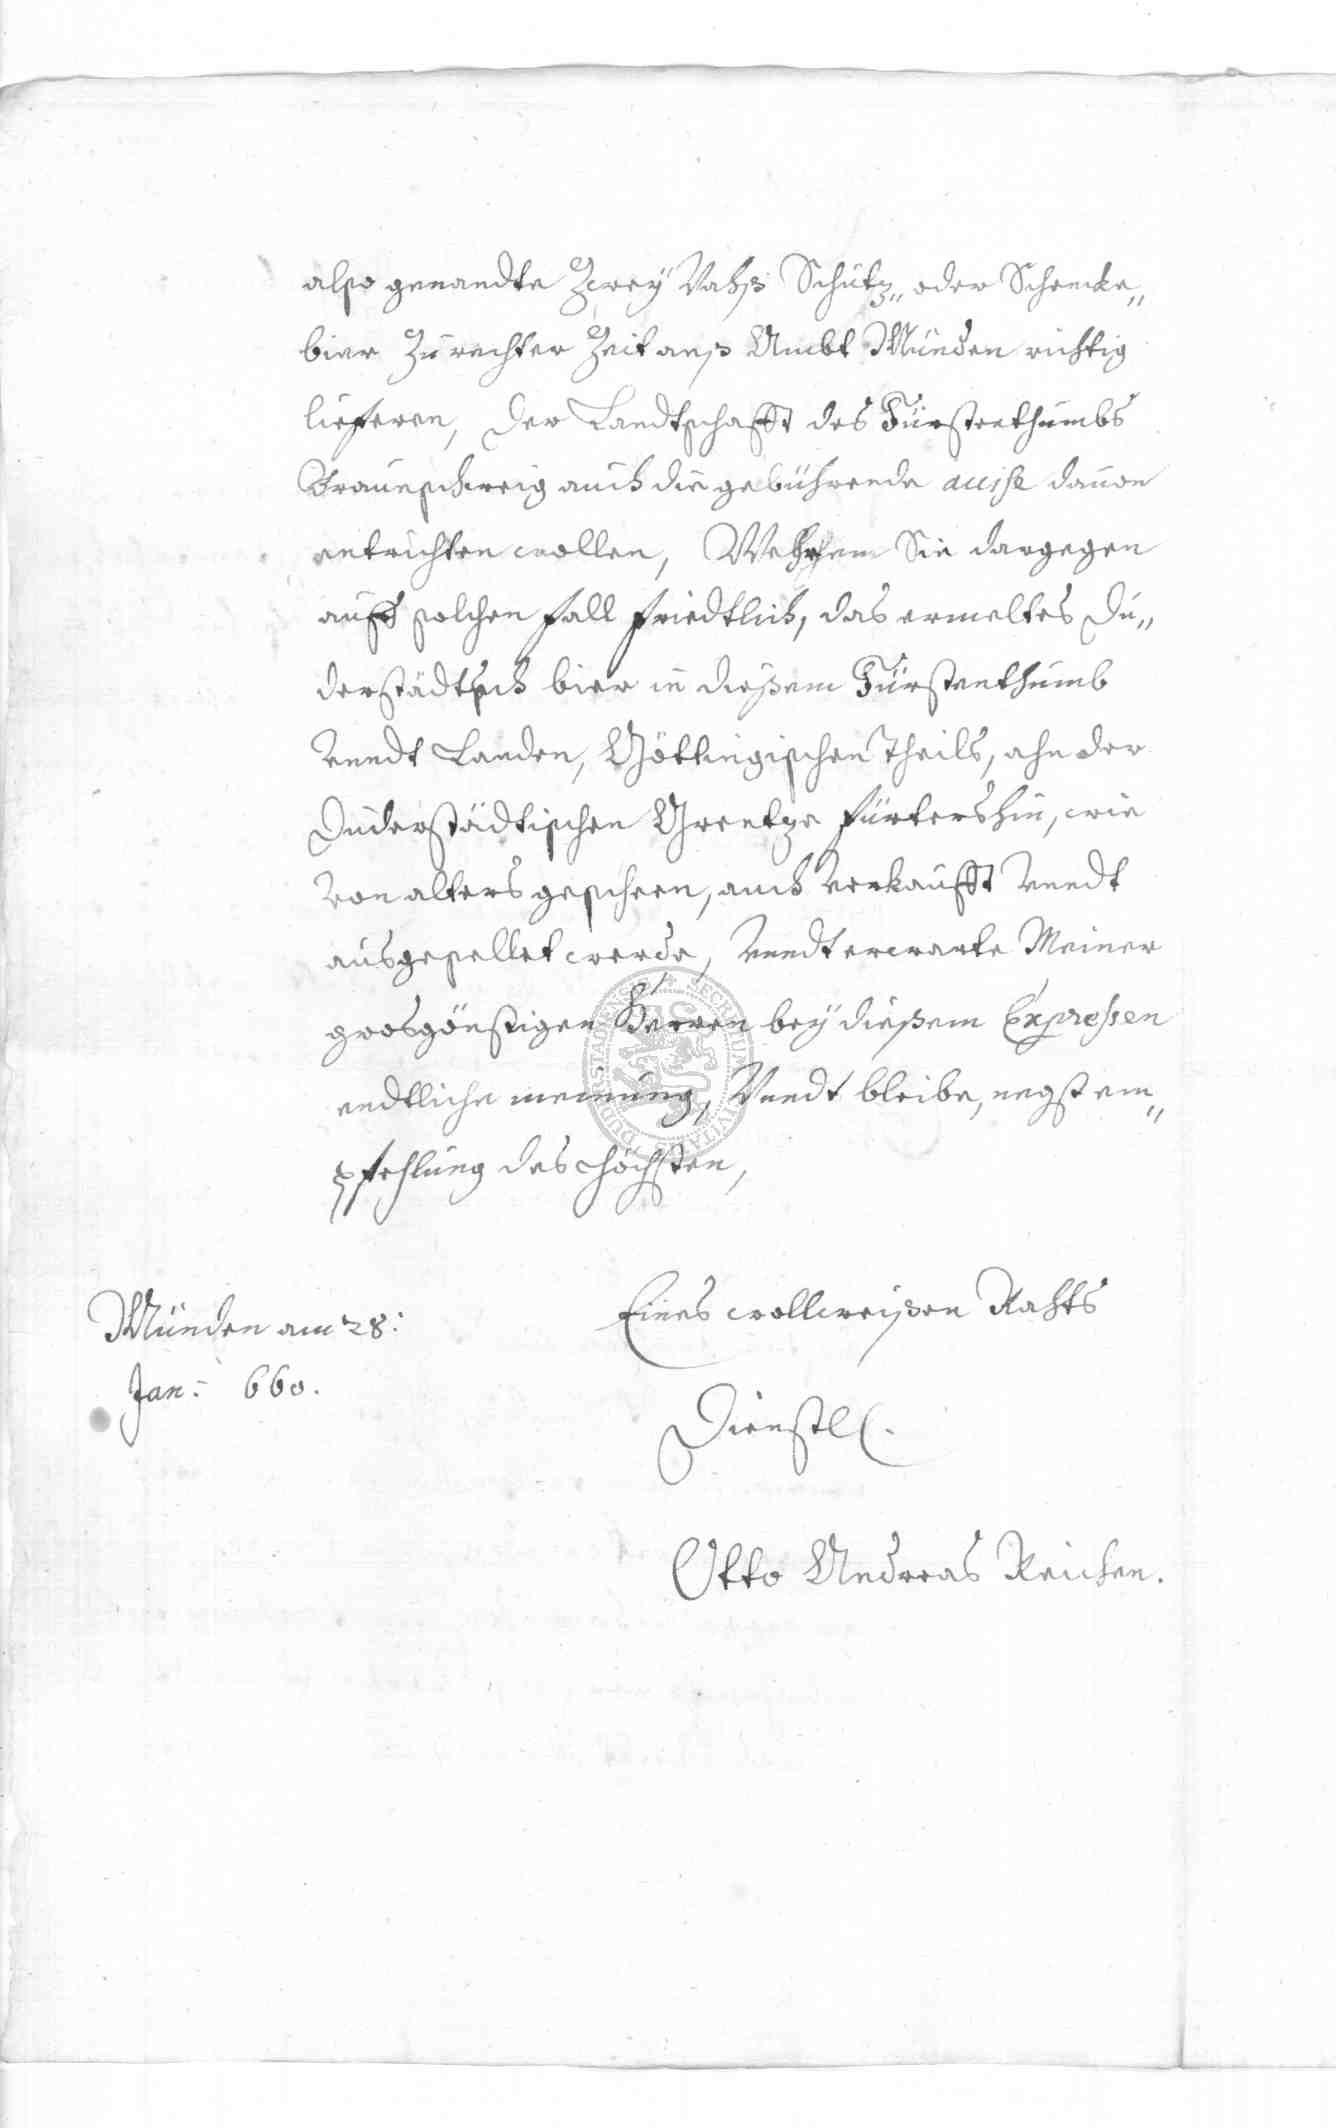 also genandte Zwey Vahß Schütz„ oder Schencke„
bier Zu rechter Zeit anß Ambt Münden richtig
lieferen, der Landtschafft des Fürstenthumbs
Braunschweig auch die gebührende accise dauon
entrichten wollen, Sie dargegen
auff solchen fall friedtlich, das ermeltes Du„
derstädtsch bier in dießem Fürstenthumb
Vnndt Landen, Göttingischen Theils, ahn der
Duderstädtischen Grentze fürtershin, wie
von alters geschehen, auch verkaufft Vnndt
ausgesellet werde, Vnndt erwarte Meiner
grosgönstigen Herren bey dießem Expressen
endtliche meinung, Vnndt bleibe, negst em„
pfehlung des höchsten,
Münden am 28:
Jan: 660.
Eines wollweißen Rahts
Dienstl.
Otto Andreas Reichen.
SECRETUM CIVITATIS DUDERSTADIENSIS